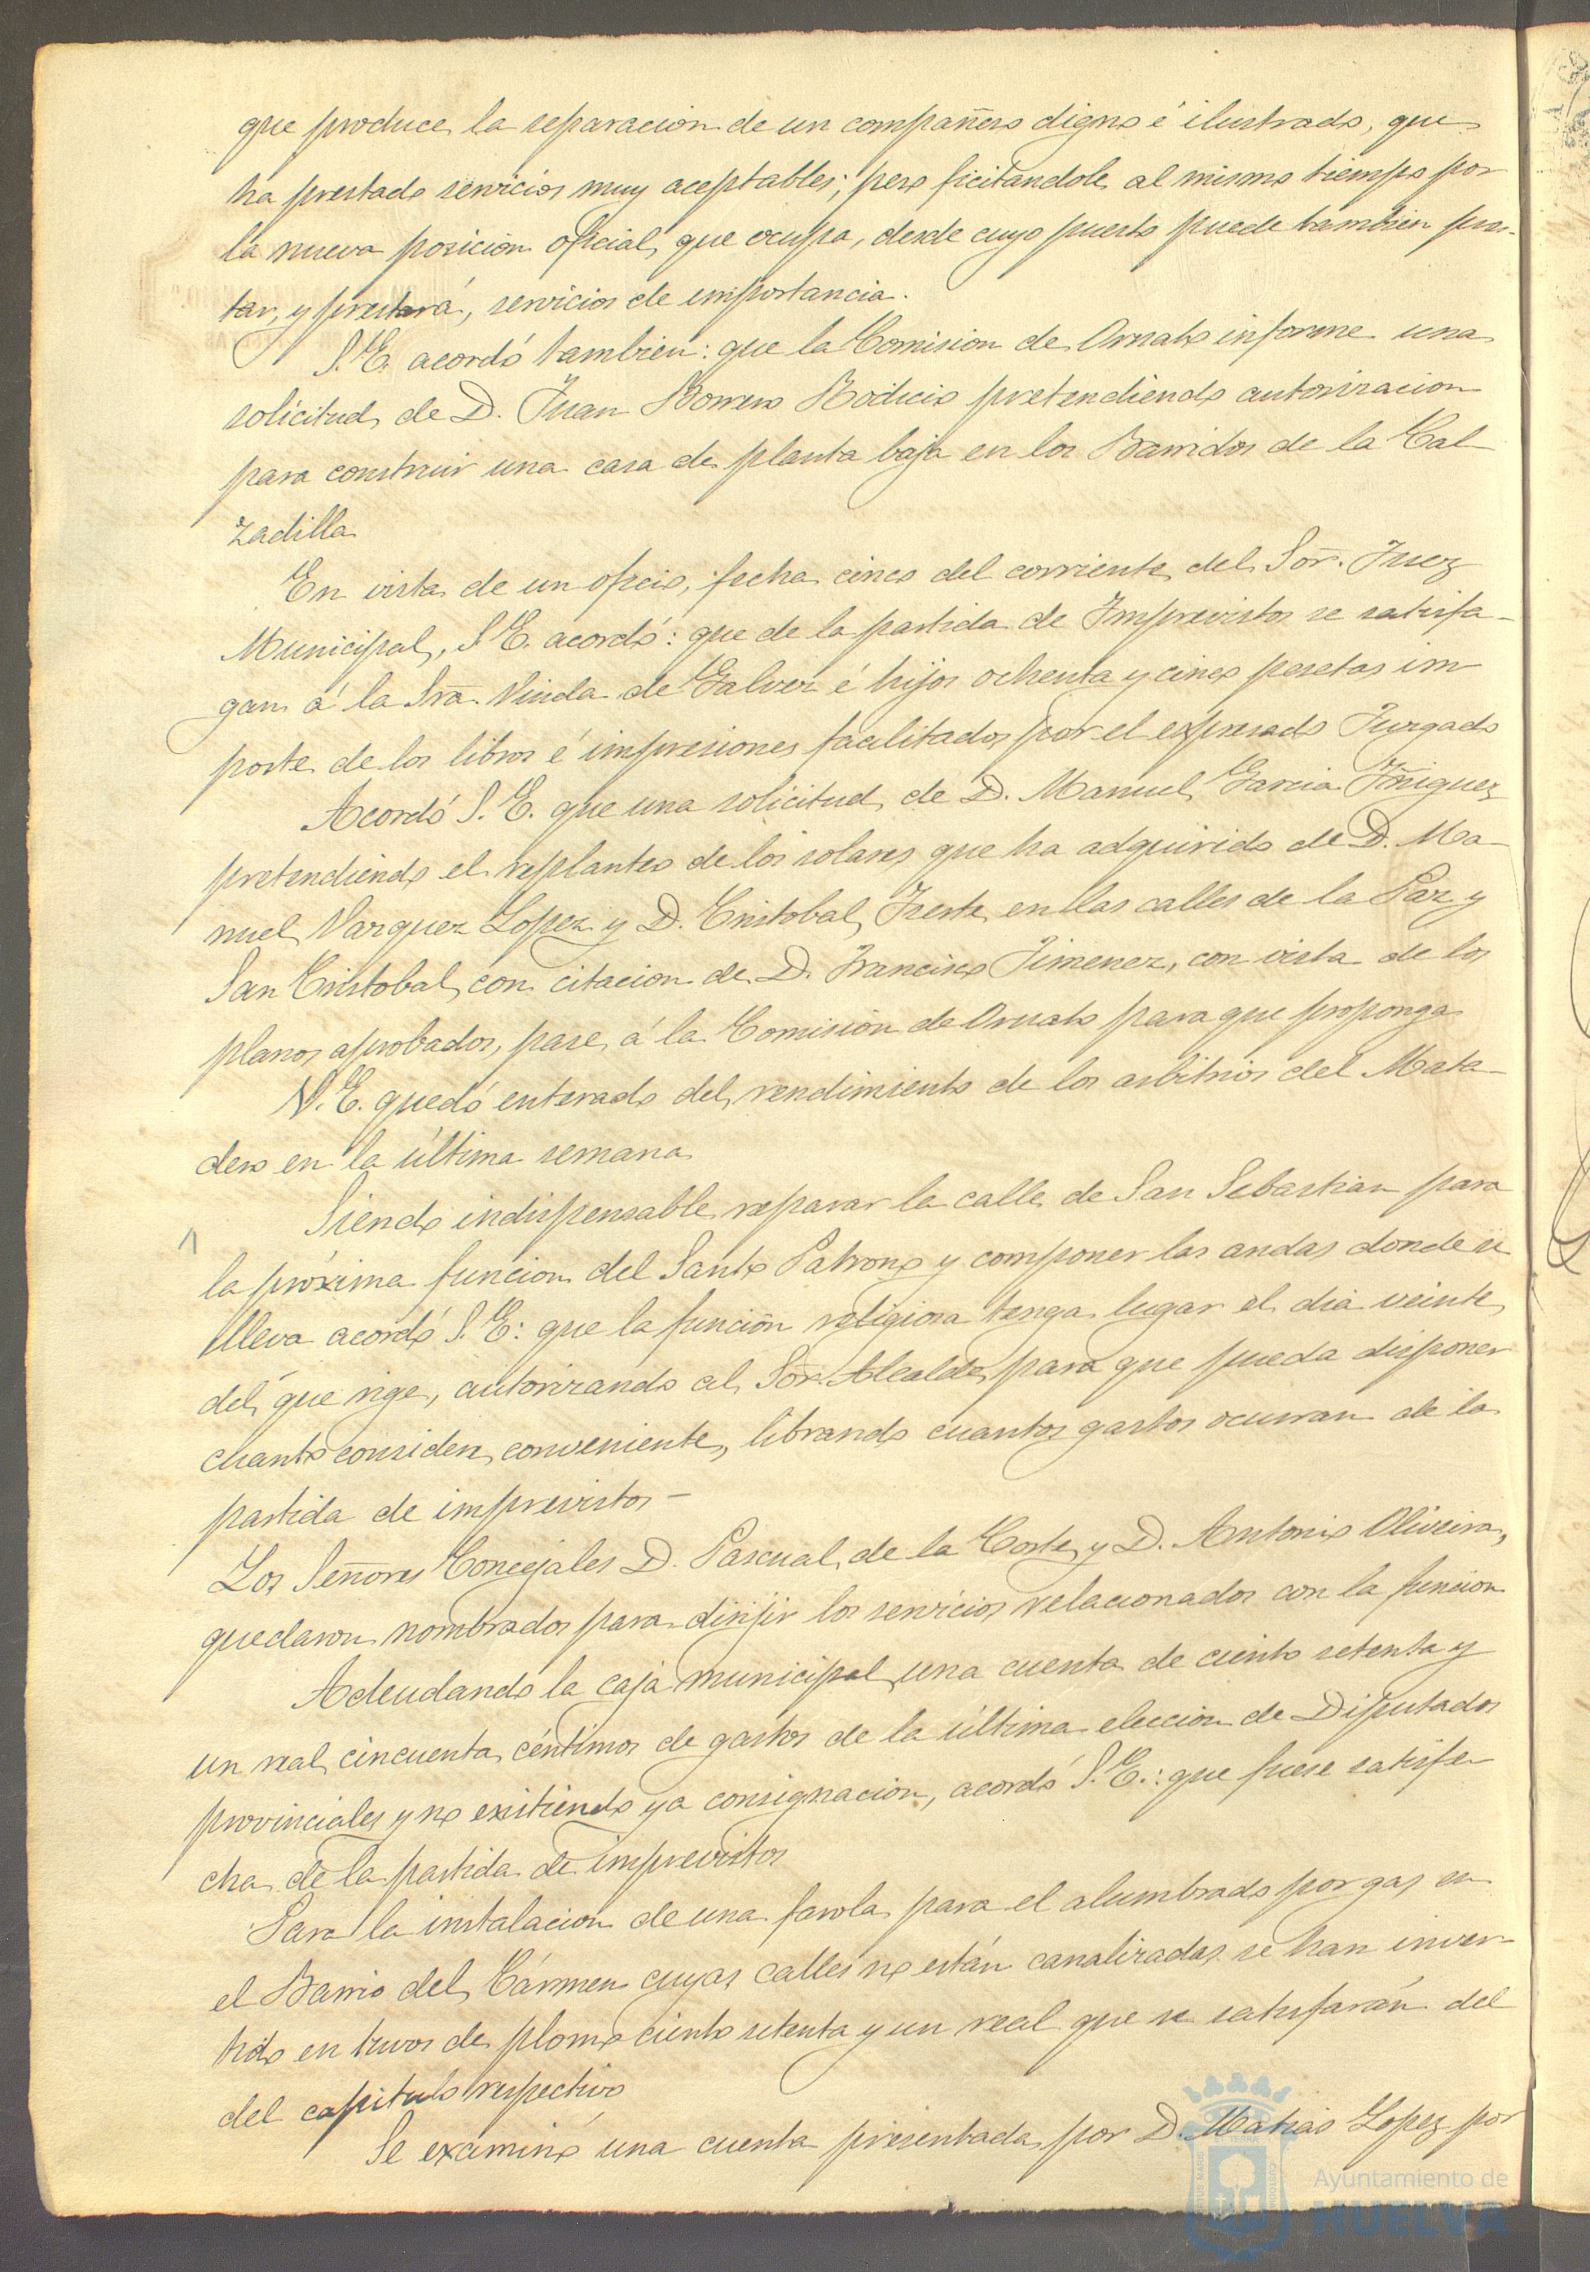 que produce la separacion de un compañero digno é ilustrado, que
ha prestado servicios muy aceptables; pero ficitandole al mismo tiempo por
la nueva posicion oficial, que ocupa, desde cuyo puesto puede tambien pres-
tar, y prestará, servicios de importancia.
S. E. acordó tambien: que la Comision de Ornato informe una
solicitud de D. Juan Borrero Rodicio pretendiendo autorizacion
para construir una casa de planta baja en los Barridos de la Cal-
zadilla
En vista de un oficio, fecha cinco del corriente del Sor. Juez
Municipal, S. E. acordó: que de la partida de Imprevistos se satisfa-
gan á la Sra. Viuda de Galvez é hijos ochenta y cinco pesetas im-
porte de los libros é impresiones facilitados por el expresado Juzgado
Acordó S. E. que una solicitud de D. Manuel Garcia Iñiguez
pretendiendo el replanteo de los solares que ha adquirido de D. Ma-
nuel Vazquez Lopez y D. Cristobal en las calles de la Paz y
San Cristobal, con citacion de D. Francisco Jimenez, con vista de los
planos aprobados, pase á la Comisión de Ornato para que proponga
S. E. quedó enterado del rendimiento de los arbitrios del Mata-
dero en la última semana
Siendo indispensable reparar la calle de San Sebastian para
la próxima funcion del Santo Patrono y componer las andas donde se
lleva acordó S. E: que la función religiosa tenga lugar el dia veinte
del que rige, autorizando al Sor. Alcalde para que pueda disponer
cuanto considere conveniente, librando cuantos gastos ocurran de la
partida de imprevistos –
Los Señores Concejales D. Pascual de la Corte y D. Antonio Oliveira,
quedaron nombrados para dirijir los servicios relacionados con la funcion
Adeudando la caja municipal una cuenta de ciento setenta y
un real cincuenta céntimos de gastos de la última eleccion de Diputados
provinciales y no existiendo ya consignacion, acordó S. E.: que fuese satisfe-
cha de la partida de imprevistos
Para la instalacion de una farola para el alumbrado por gas en
el Barrio del Cármen cuyas calles no están canalizadas se han inver-
tido en tuvos de plomo ciento setenta y un real que se satisfarán del
del capitulo respectivo
Se examinó una cuenta presentada por D. Matias Lopez por
Ayuntamiento de
HUELVA